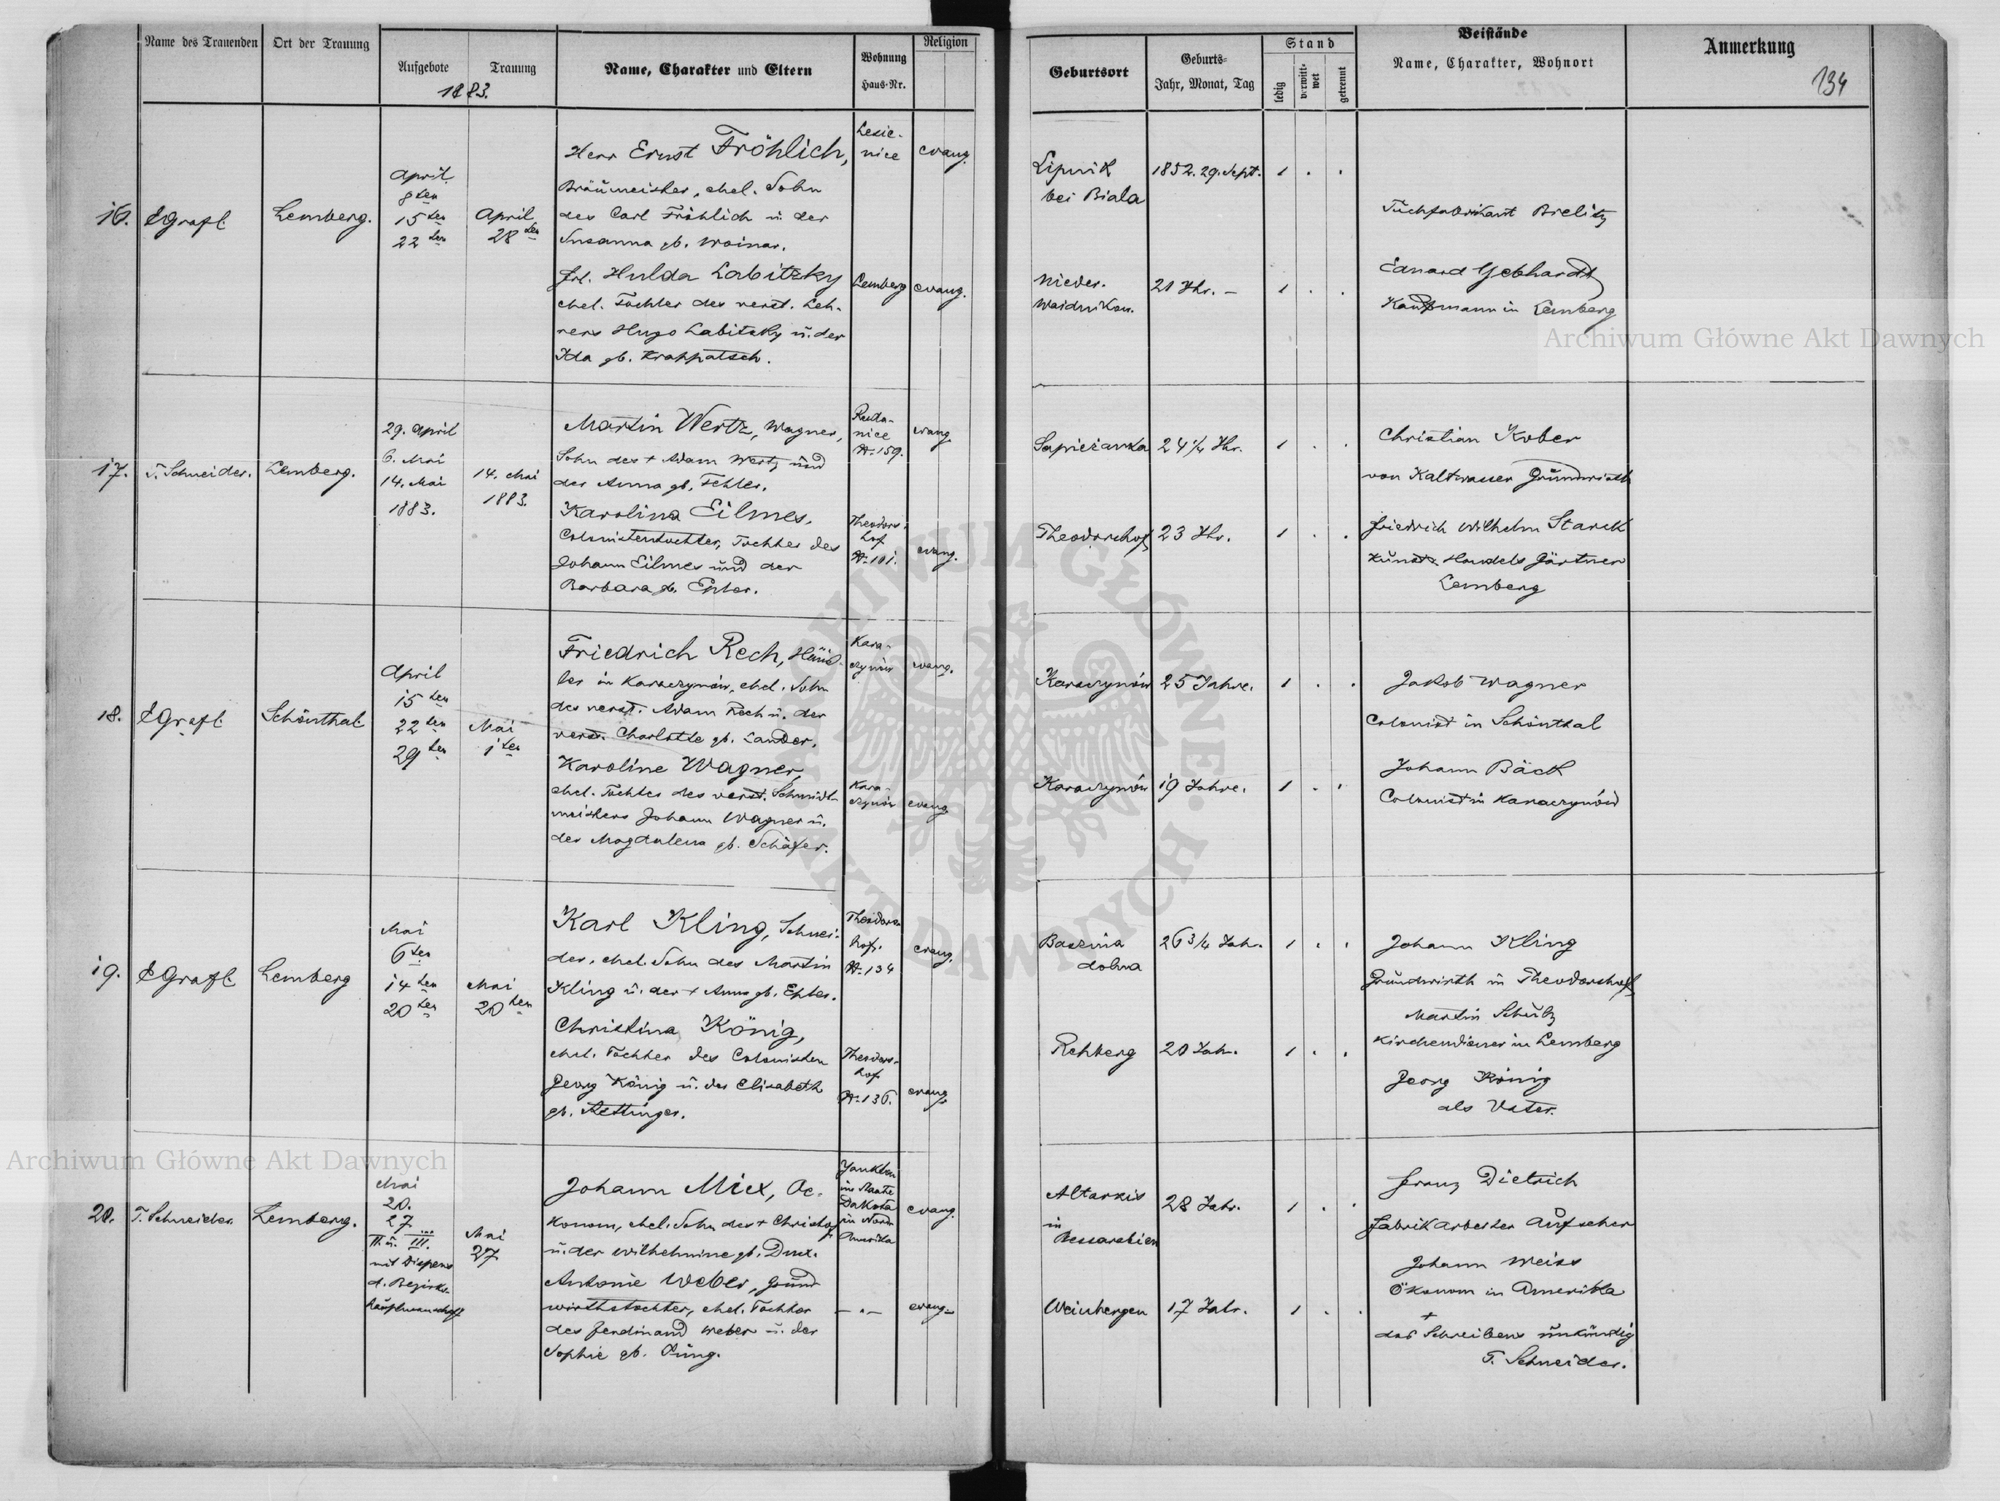 Name des Trauenden
Ort der Trauung
Aufgebote
Trauung
1883.
Name, Charakter und Eltern
Wohnung
Haus-Nr.
Religion
Geburtsort
Geburts-
Jahr, Monat, Tag
Stand
ledig
verwitt-
wet
getrennt
Beistände
Name, Charakter, Wohnort
Anmerkung
134
16.
EGrafl
Lemberg.
April
8ten
15ten
22ten
April
28ten
Herr Ernst Fröhlich,
Bräumeister, ehel. Sohn
des Carl Fröhlich u der
Susanna gb. Woinar.
Frl. Hulda Labitzky
ehel. Tochter des verst. Leh-
rers Hugo Labitzky u. der
Ida gb. Krappatsch.
Lesie-
nice
evang.
Lemberg
evang.
Lipnik
bei Biala
1852. 29. Sept.
1 . .
Tuchfabrikant Bielitz
Nieder.
21 Jhr. –
1 . .
Eduard Gebhardt
Kaufmann in Lemberg
17.
T. Schneider.
Lemberg.
29. April
6. Mai
14. Mai
1883.
14. Mai
1883.
Martin Wertz, Wagner,
Sohn des + Adam Wertz und
der Anna gb. Fehler.
Karolina Eilmes,
Colonistentochter, Tochter des
Johann Eilmes und der
Barbara gb. Ehter.
Ruda-
nice
N. 159.
evang
Theodors-
hof
N. 101.
evang.
Sapieżanka
24 1/4 Jhr.
1 . .
Christian Kober
von Kaltwasser Grundwirth
Theodorshof
23 Jhr.
1 . .
Friedrich Wilhelm Starck
Kunst- Handels Gärtner
Lemberg
18.
EGrafl
Schönthal
April
15ten
22ten
29ten
Mai
1ten
Friedrich Rech, Häus-
ler in Karaczynów, ehel. Sohn
des verst. Adam Rech u. der
verst. Charlotte gb. Lander.
Karoline Wagner,
ehel. Tochter des verst. Schmidt-
meisters Johann Wagner u.
der Magdalena gb. Schäfer.
Kara-
czynów
evang.
Kara-
czynów
evang
Karaczynów
25 Jahre.
1 . .
Jakob Wagner
Colonist in Schönthal
Karaczynów
19 Jahre.
1 . .
Johann Bäck
Colonist in Karaczynów
19.
EGrafl
Lemberg
Mai
6ten
14ten
20ten
Mai
20ten
Karl Kling, Schnei-
der, ehel. Sohn des Martin
Kling u. der + Anna gb. Ehter.
Christina König,
ehel. Tochter des Colonisten
Georg König u. der Elisabeth
gb. Rettinger.
Theodors-
hof.
N. 134
evang.
Theodors-
hof
N. 136.
evang.
Baczina
dolna
26 3/4 Jahr.
1 . .
Johann Kling
Grundwirth in Theodorshof
Martin Schütz
Kirchendiener in Lemberg
Rehberg
20 Jahr.
1 . .
Georg König
als Vater.
20.
T. Schneider
Lemberg.
Mai
20.
27
II. u. III.
mit Dispens
d. Bezirks-
hauptmannschaft
Mai
27
Johann Miex, Oe-
konom, ehel. Sohn des + Christof
u. der Wilhelmine gb. Dux.
Antonie Weber, Grund-
wirthstochter, ehel. Tochter
des Ferdinand Weber u. der
Sophie gb. Jung.
Yankton
im Staate
Dakota
in Nord
Amerika
evang.
– " –
evang.
in
Bessarabien
28 Jahr.
1 . .
Franz Dietrich
Fabrikarbeiter Aufseher
Johann Weiss
Ökonom in Amerikka
Weinbergen
17 Jahr.
1 . .
+
des Schreibens unkundig
T. Schneider.
Archiwum Główne Akt Dawnych
Archiwum Główne Akt Dawnych
ARCHIWUM GŁÓWNE AKT DAWNYCH